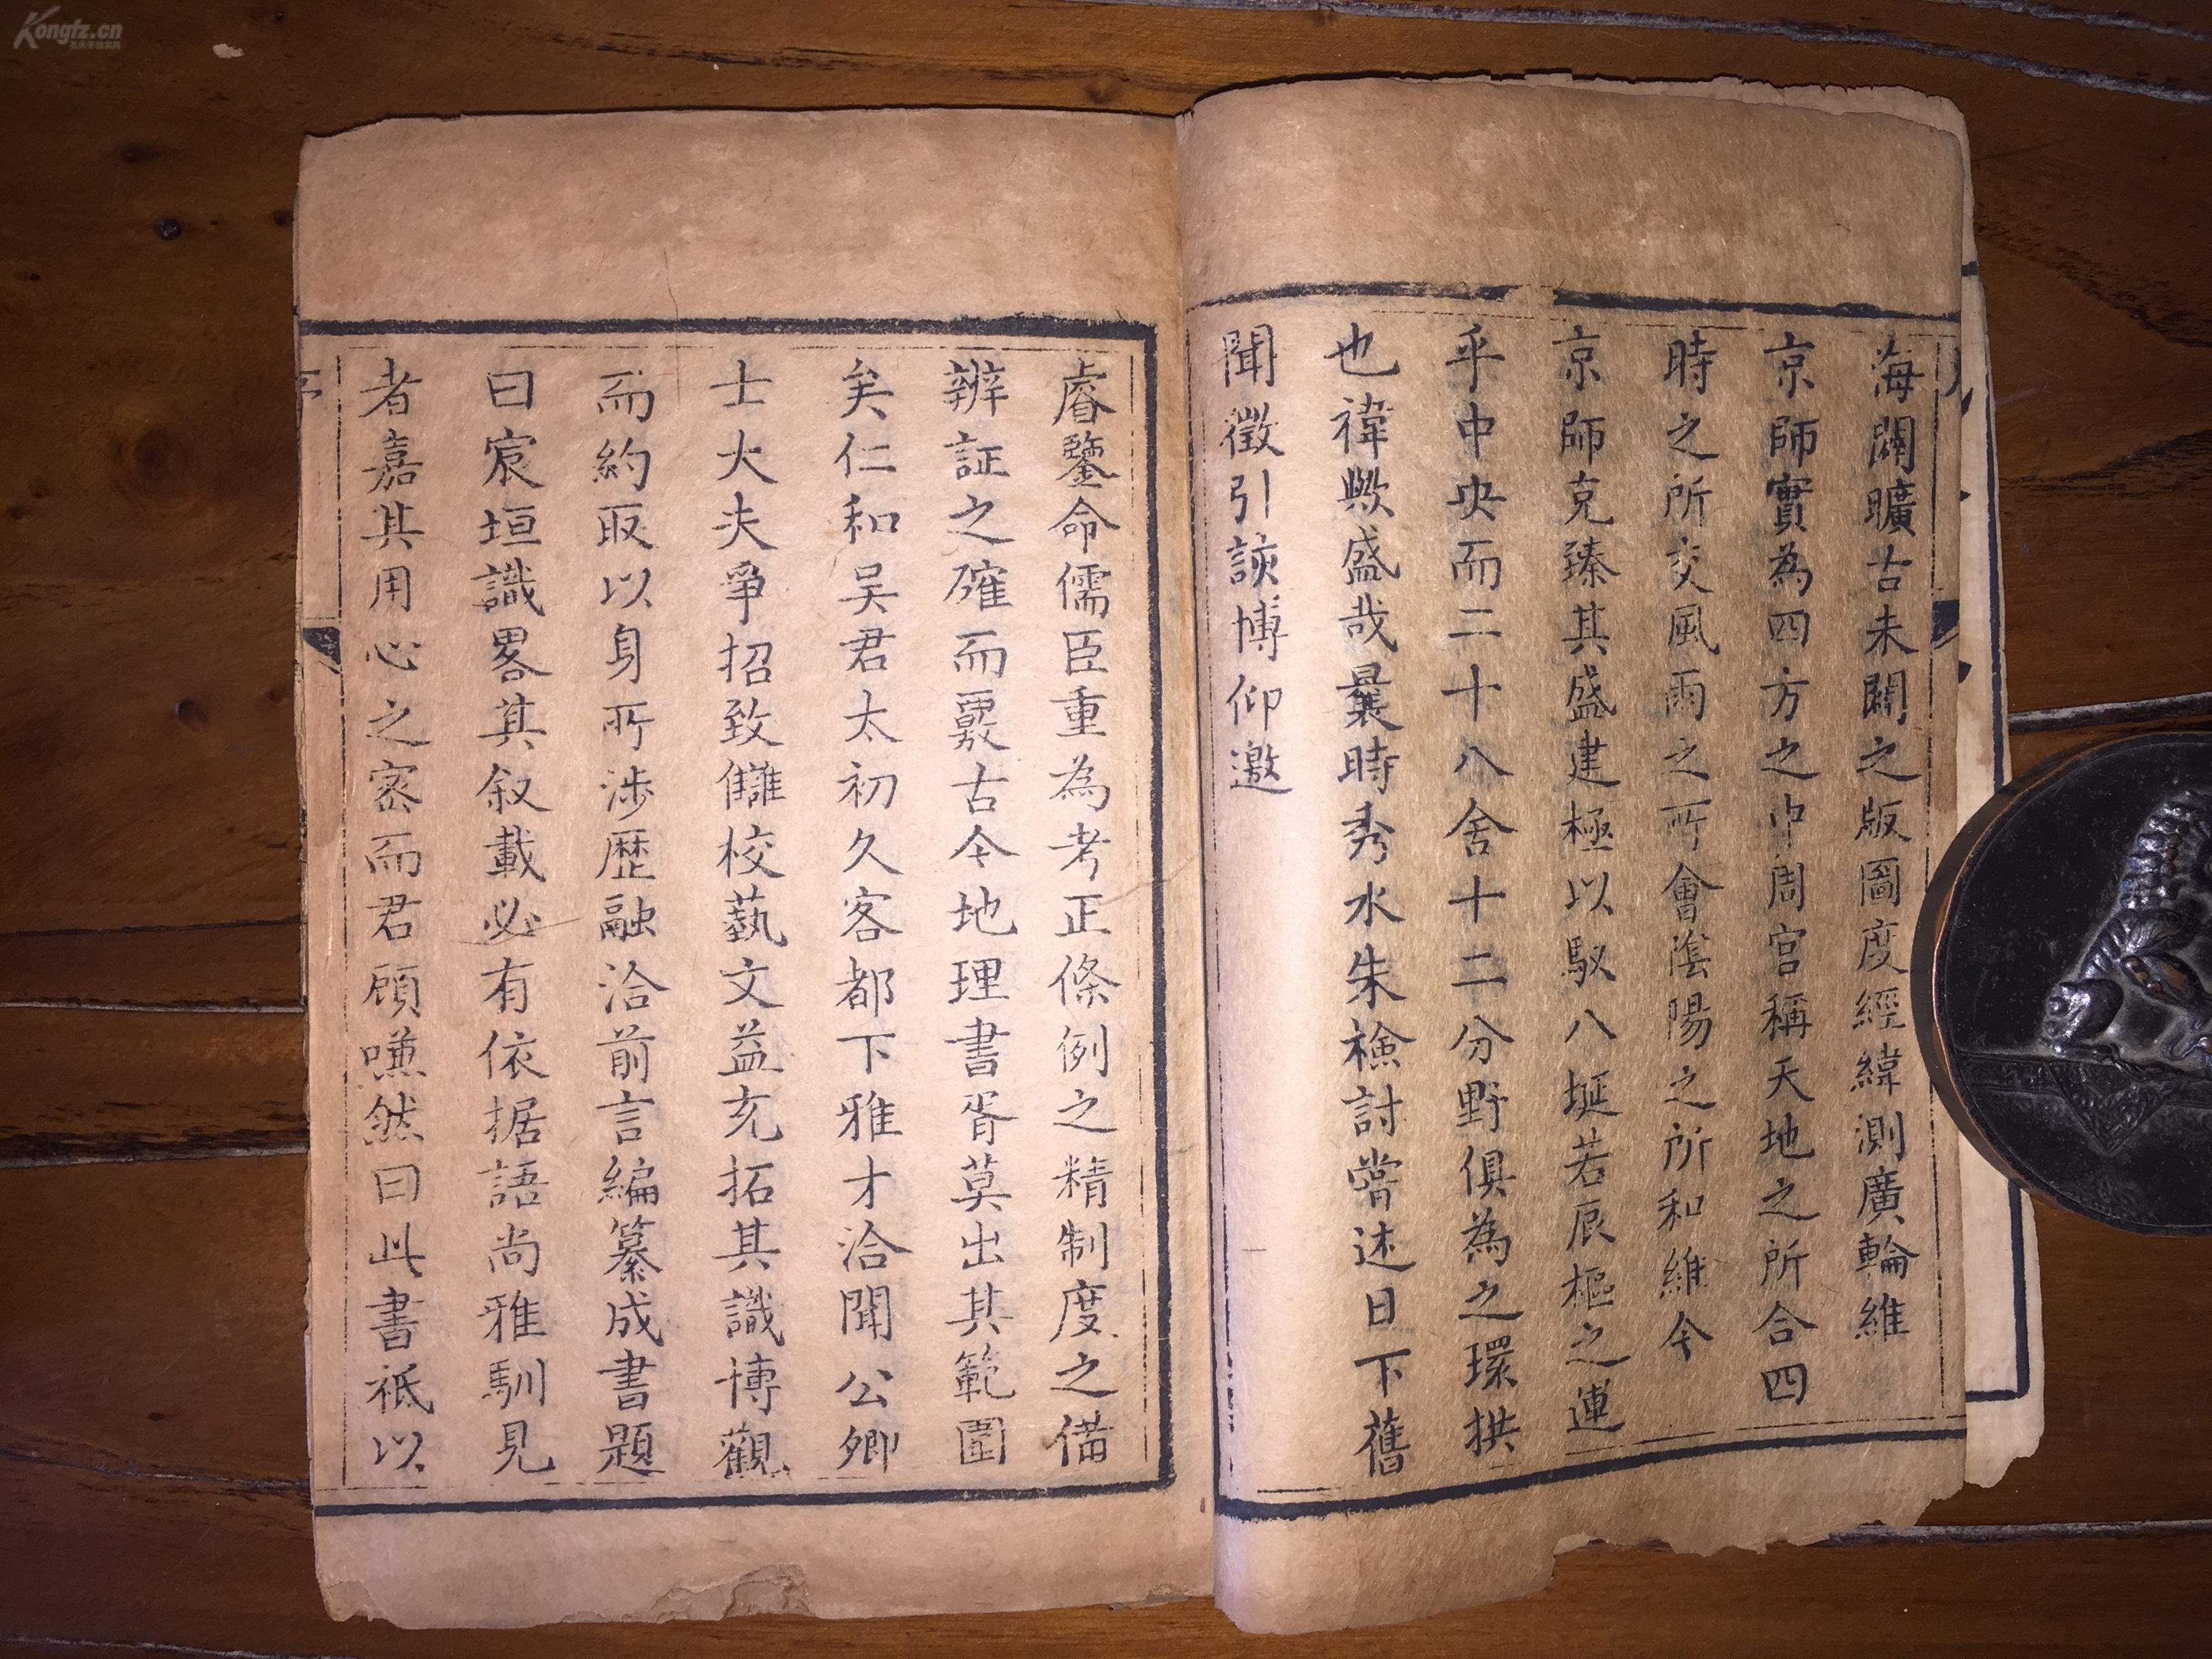 海闢曠古未闢之版圖度經緯測廣輪維
京師實為四方之中周官稱天地之所合四
時之所交風雨之所會陰陽之所和維今
京師克臻其盛建極以馭八埏若辰樞之運
乎中央而二十八舍十二分野俱為之環拱
也禕歟盛哉曩時秀水朱檢討嘗述日下舊
聞徵引詼博仰邀
睿鑒命儒臣重為考正條例之精制度之備
辨証之確而覈古今地理書胥莫出其範圍
矣仁和吳君太初久客都下雅才洽聞公卿
士大夫爭招致讎校藝文益充拓其識博觀
而約取以身所涉歷融洽前言編纂成書題
曰宸垣識畧其叙載必有依据語尚雅馴見
者嘉其用心之密而君顧嗛然曰此書祇以
Kongfz.cn
孔夫子旧书网